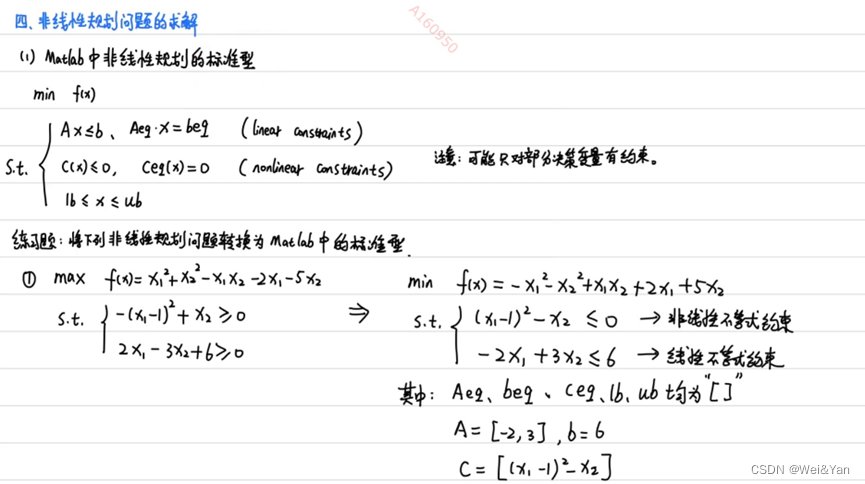 四、非线性规划问题的求解
A160950
(1) Matlab中非线性规划的标准型
min f(x)
s.t. { Ax≤b、 Aeq·x=beq (linear constraints)
C(x)≤0, Ceq(x)=0 (nonlinear constraints)
lb≤x≤ub
注意:可能只对部分决策变量有约束。
练习题:将下列非线性规划问题转换为Matlab中的标准型.
① max f(x)=x₁²+x₂²-x₁x₂-2x₁-5x₂
s.t. { -(x₁-1)²+x₂≥0
2x₁-3x₂+6≥0
⇒
min f(x)=-x₁²-x₂²+x₁x₂+2x₁+5x₂
s.t. { (x₁-1)²-x₂ ≤0 →非线性不等式约束
-2x₁+3x₂≤6 →线性不等式约束
其中: Aeq、beq、Ceq、lb、ub均为"[]"
A=[-2,3],b=6
C=[(x₁-1)²-x₂]
CSDN @Wei&Yan